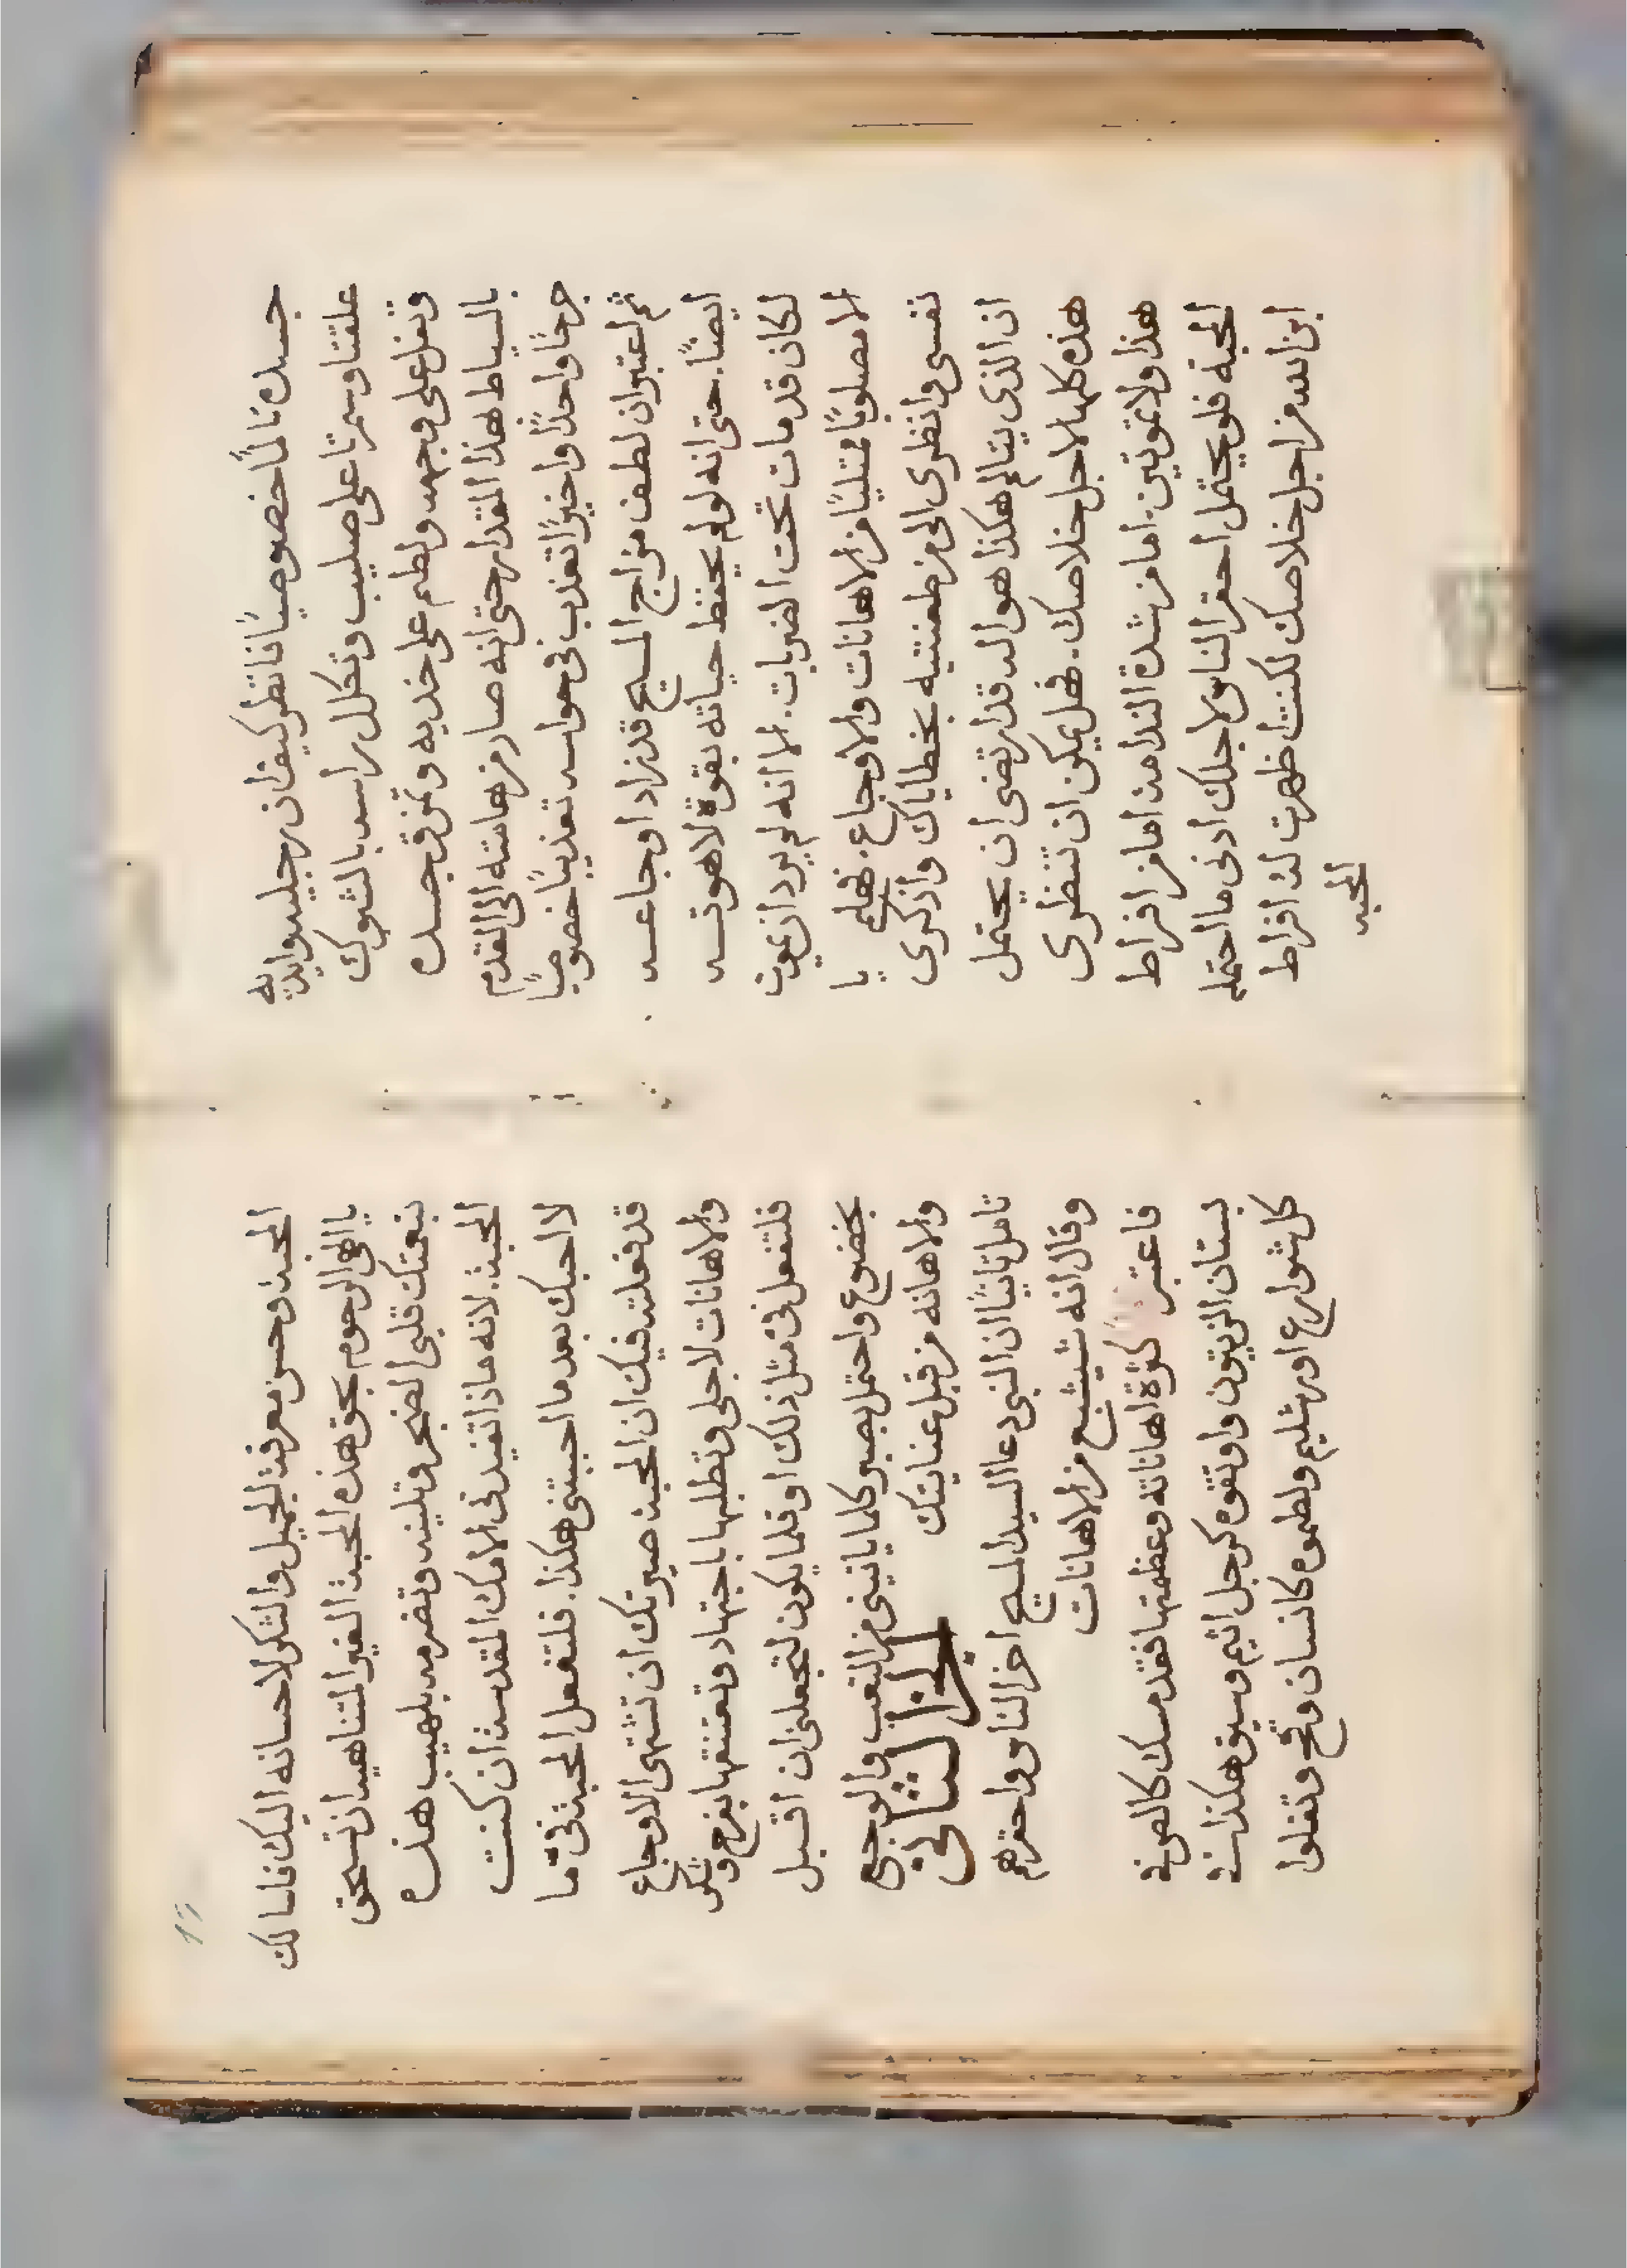 جسده تالمًا خصوصيًا فانظر كيف ان رجليه وايديه
علقتا وسمرتا على صليب وتكلل راسه بالشوك
وتفل على وجهه ولطم على خديه وتمزق جسده
بالسياط بهذا المقدار حتى انه صار من هامته الى القدم
جرحًا واحدًا واخيرًا تعذب في حواسه تعذيبًا خصوصيًا
ثم اعتبر ان لطف مزاج المسيح قد زاد اوجاعه
ايضًا. حتى انه لو لم يحتفظ حياته بقوة لاهوته
لكان قد مات تحت الضربات. الا انه لم يرد ان يموت
الا مصلوبًا ممتليًا من الاهانات والاوجاع. فهلم يا
نفسي وانظري الى من طعنتيه بخطاياك واذكري
ان الذي يتالم هكذا هو الله قد ارتضى ان يحتمل
هذه كلها لاجل خلاصك. فهل يمكن ان تنظري
هذا ولا تموتين. اما من شدة الندامة اما من افراط
المحبة فلو يحتمل احقر الناس لاجلك ادنى ما احتمله
ابن الله من اجل خلاصك لكنت اظهرت له افراط
المحبه
١٦
المحبة وحسن معرفة الجميل والشكر لاحسانه اليك فاسالك
يا الهي الرحوم بحق هذه المحبة الغير المتناهية ان تسحق
بنعمتك قلبي الضجر وتلينه وتضرمه بلهيب هذه
المحبة. لانه ماذا تفيدني الامك المقدسة ان كنت
لا احبك بعد ما احببتني هكذا. فلتفعل المحبة في ما
قد فعلته فيك ان المحبة صيرتك ان تشتهي الاوجاع
والاهانات لاجلي وتطلبها باجتهاد وتعتنقها بفرح وشكر
فلتفعل في مثل ذلك او قلما يكون لتجعلني ان اقبل
بخضوع واحتمل بصبر كلما ياتيني من التعب والوجع
والاهانه من قبل عنايتك
الجزا الثاني
تامل ثانيًا ان النبي دعا السيد المسيح اخر الناس واحقرهم
وقال انه شيشبع من الاهانات
فاعتبر كثرة اهاناته وعظمتها فقد مسك كالص في
بستان الزيتون واوتقوه كرجل اثيم وسيق هكذا في
كل شوارع اورشليم ولطموه كانسان وقح وتفلوا